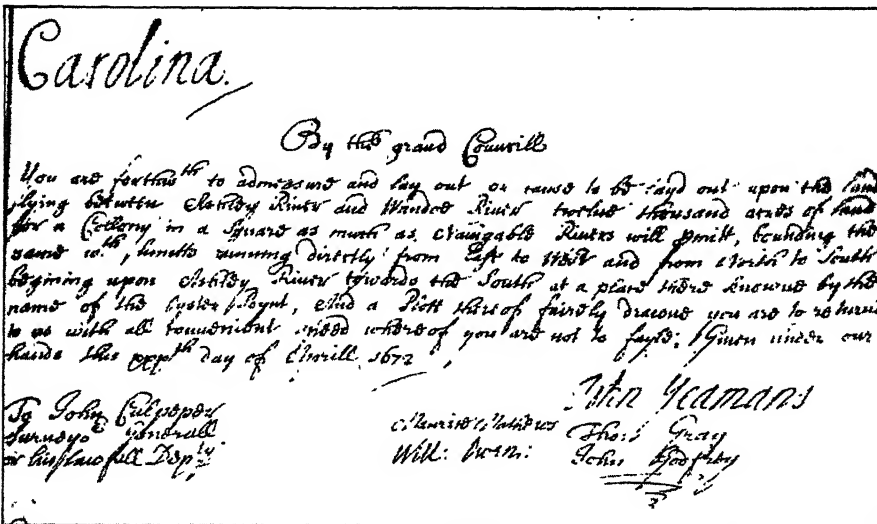 Carolina.
By the grand Councill
You are forthwth to admeasure and lay out or cause to be layd out upon the land
lying betweene Ashley River and Wandoe River twelve thousand acres of land
for a Collony in a Square as much as Navigable Rivers will pmitt, bounding the
same wth, lynes running directly from East to West and from North to South
begining upon Ashley River towards the South at a place there knowne by the
name of the Oyster Poynt, And a Plott thereof fairely drawne you are to returne
to us with all convenient speed whereof you are not to fayle; Given under our
hands this xxxth day of Aprill 1672
John Yeamans
To John Culpeper
Surveyor Generall
or his lawfull Depty
Maurice Mathews
Will: Owen:
Tho: Gray
John Godfrey